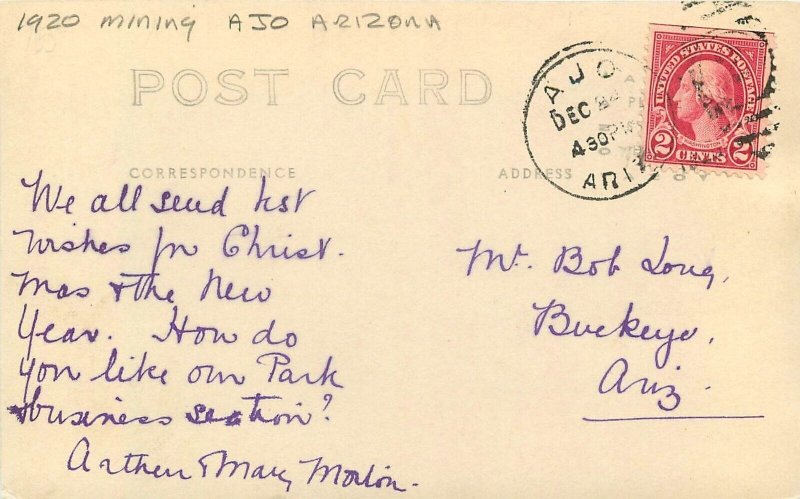 1920 mining AJO ARIZONA
POST CARD
CORRESPONDENCE
ADDRESS
AJO
DEC
430 PM
ARIZ
UNITED STATES POSTAGE
WASHINGTON
2 CENTS 2
We all send best
wishes for Christ.
mas & the New
Year. How do
you like our Park
& business section?
Arthur & Mary Morlon.
Mr. Bob Long,
Buckeye,
Ariz.